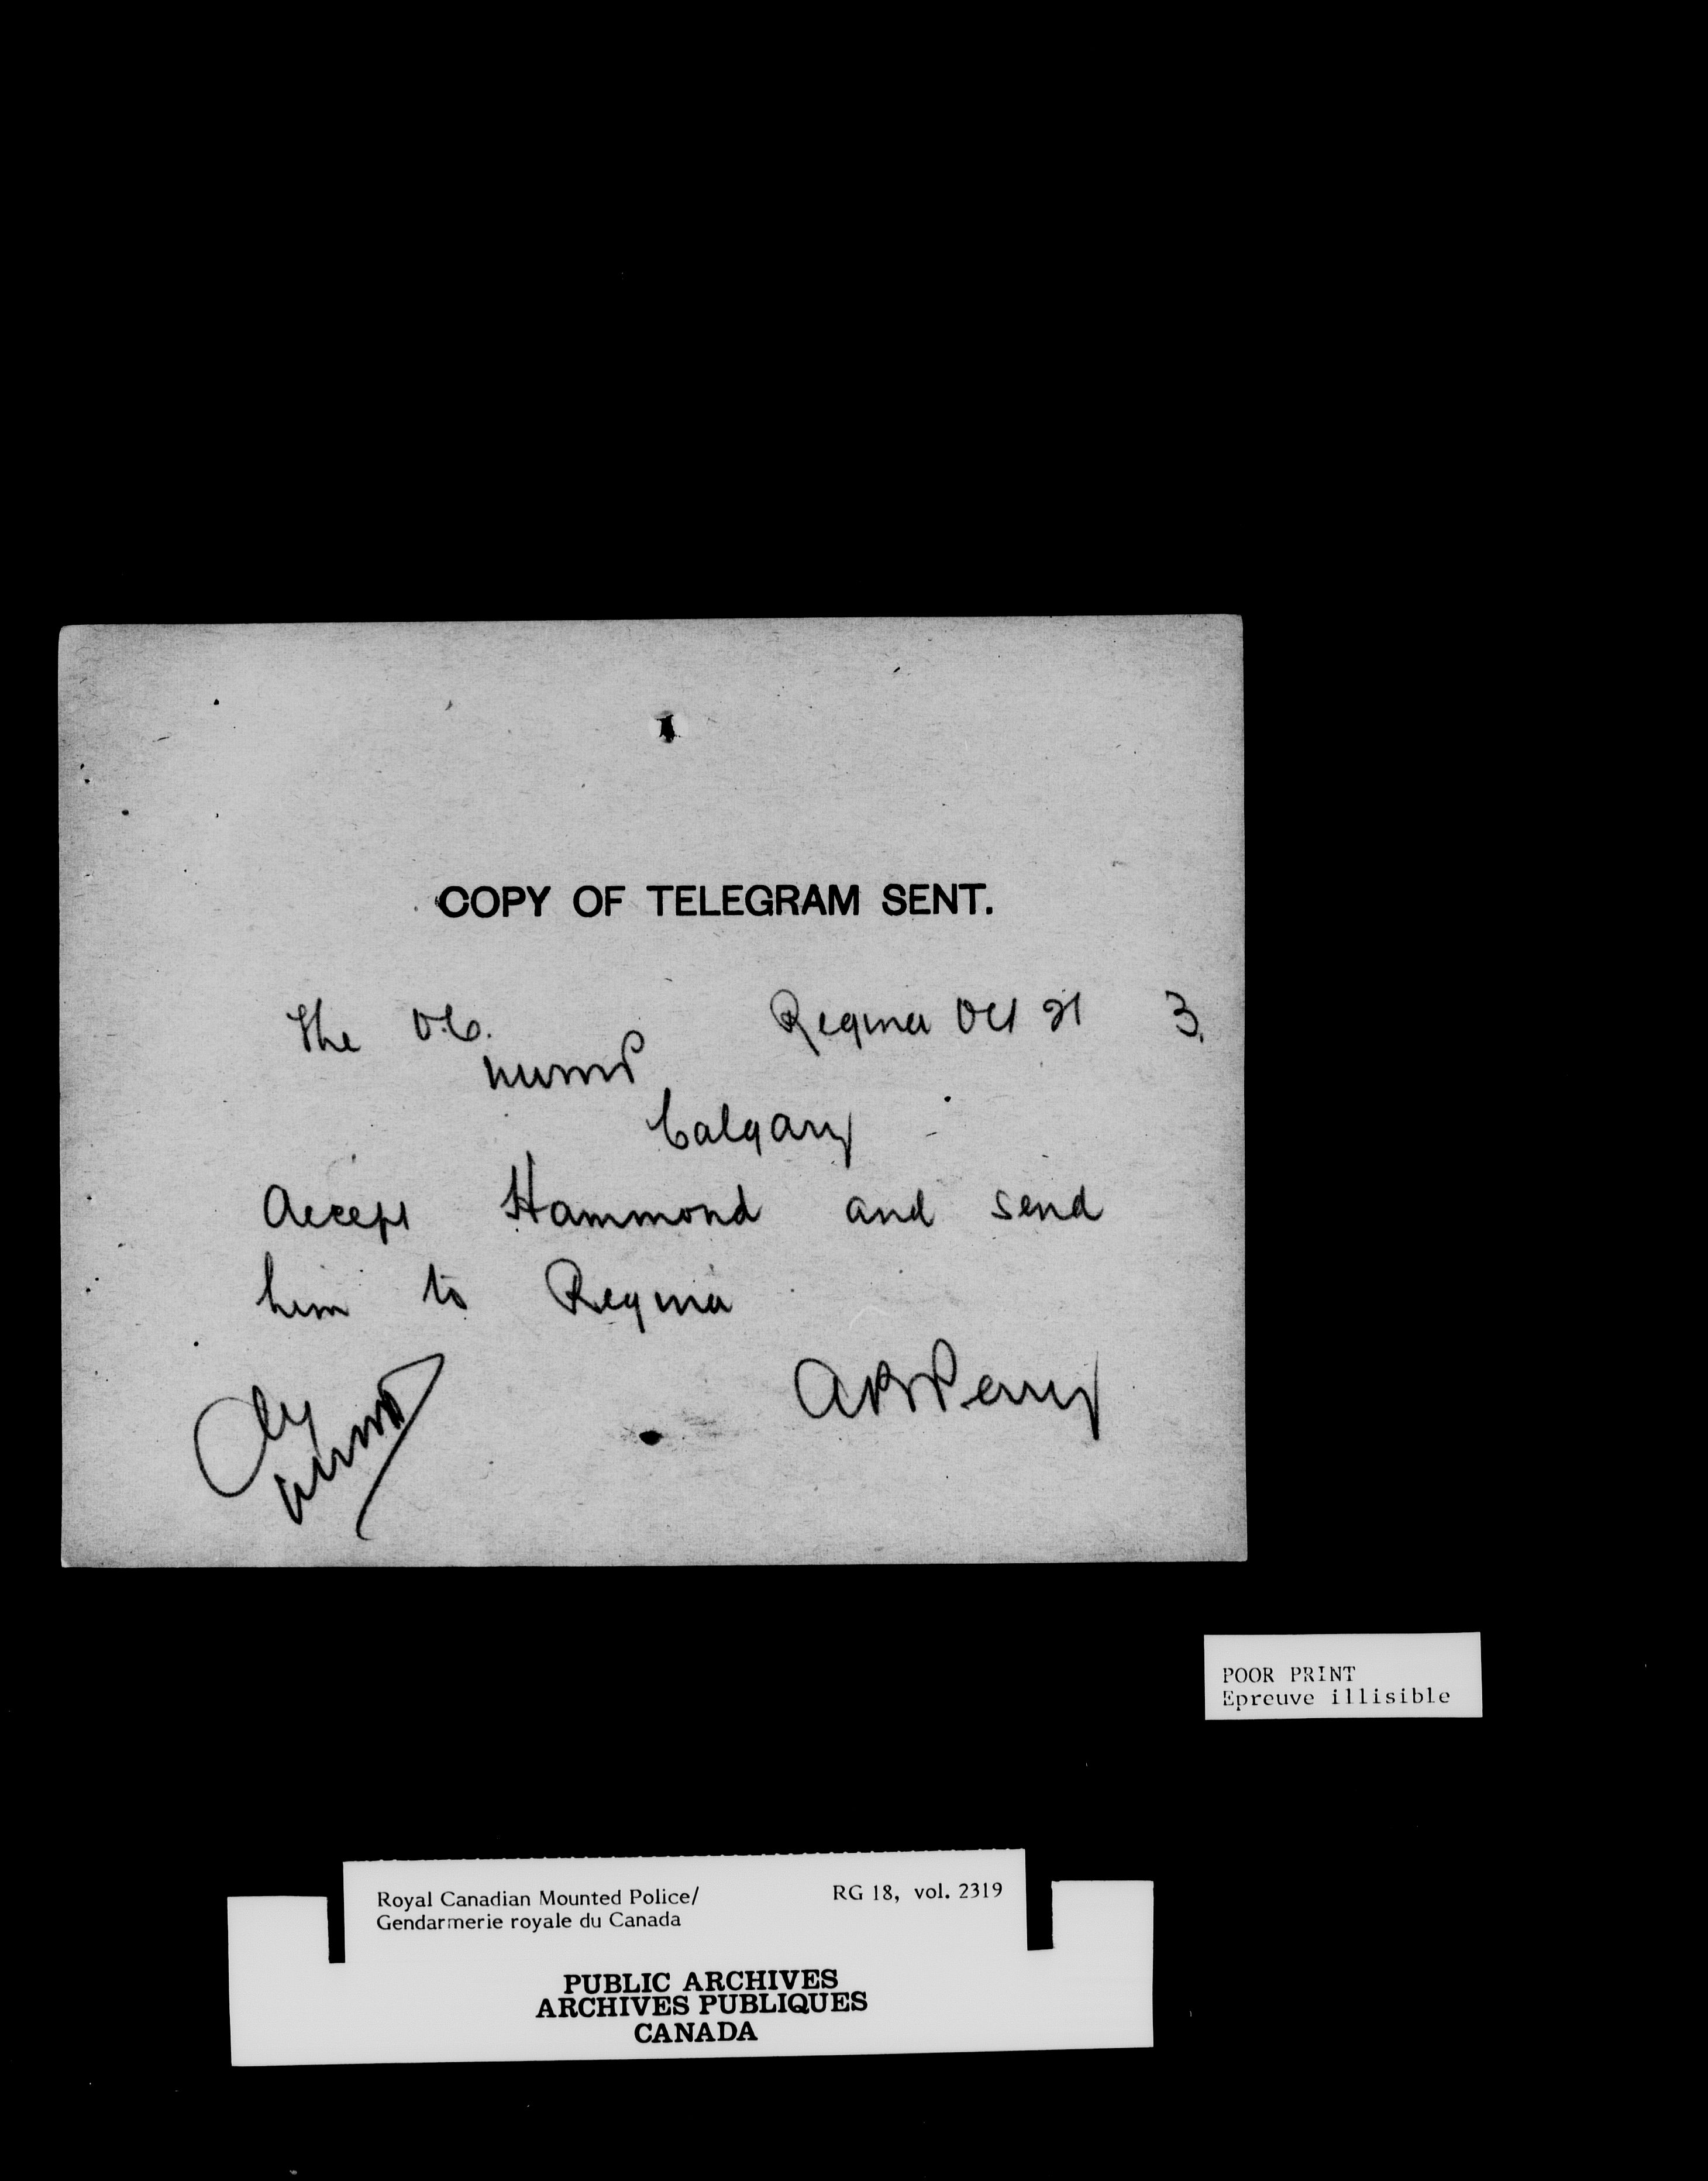 COPY OF TELEGRAM SENT.
The O.C. Regina Oct 21 3.
NWMP
Calgary
Accept Hammond and send
him to Regina
ABPerry
NWMP
POOR PRINT
Epreuve illisible
Royal Canadian Mounted Police/ RG 18, vol. 2319
Gendarmerie royale du Canada
PUBLIC ARCHIVES
ARCHIVES PUBLIQUES
CANADA